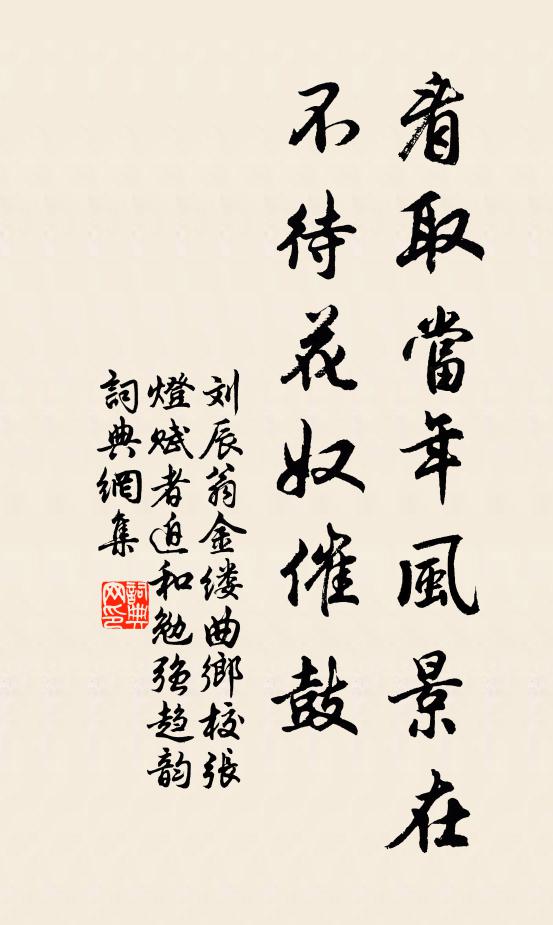 看取當年風景在
不待花奴催鼓
刘辰翁金缕曲鄉校張
燈賦者迫和勉强趋韵
詞典網集
詞典網印